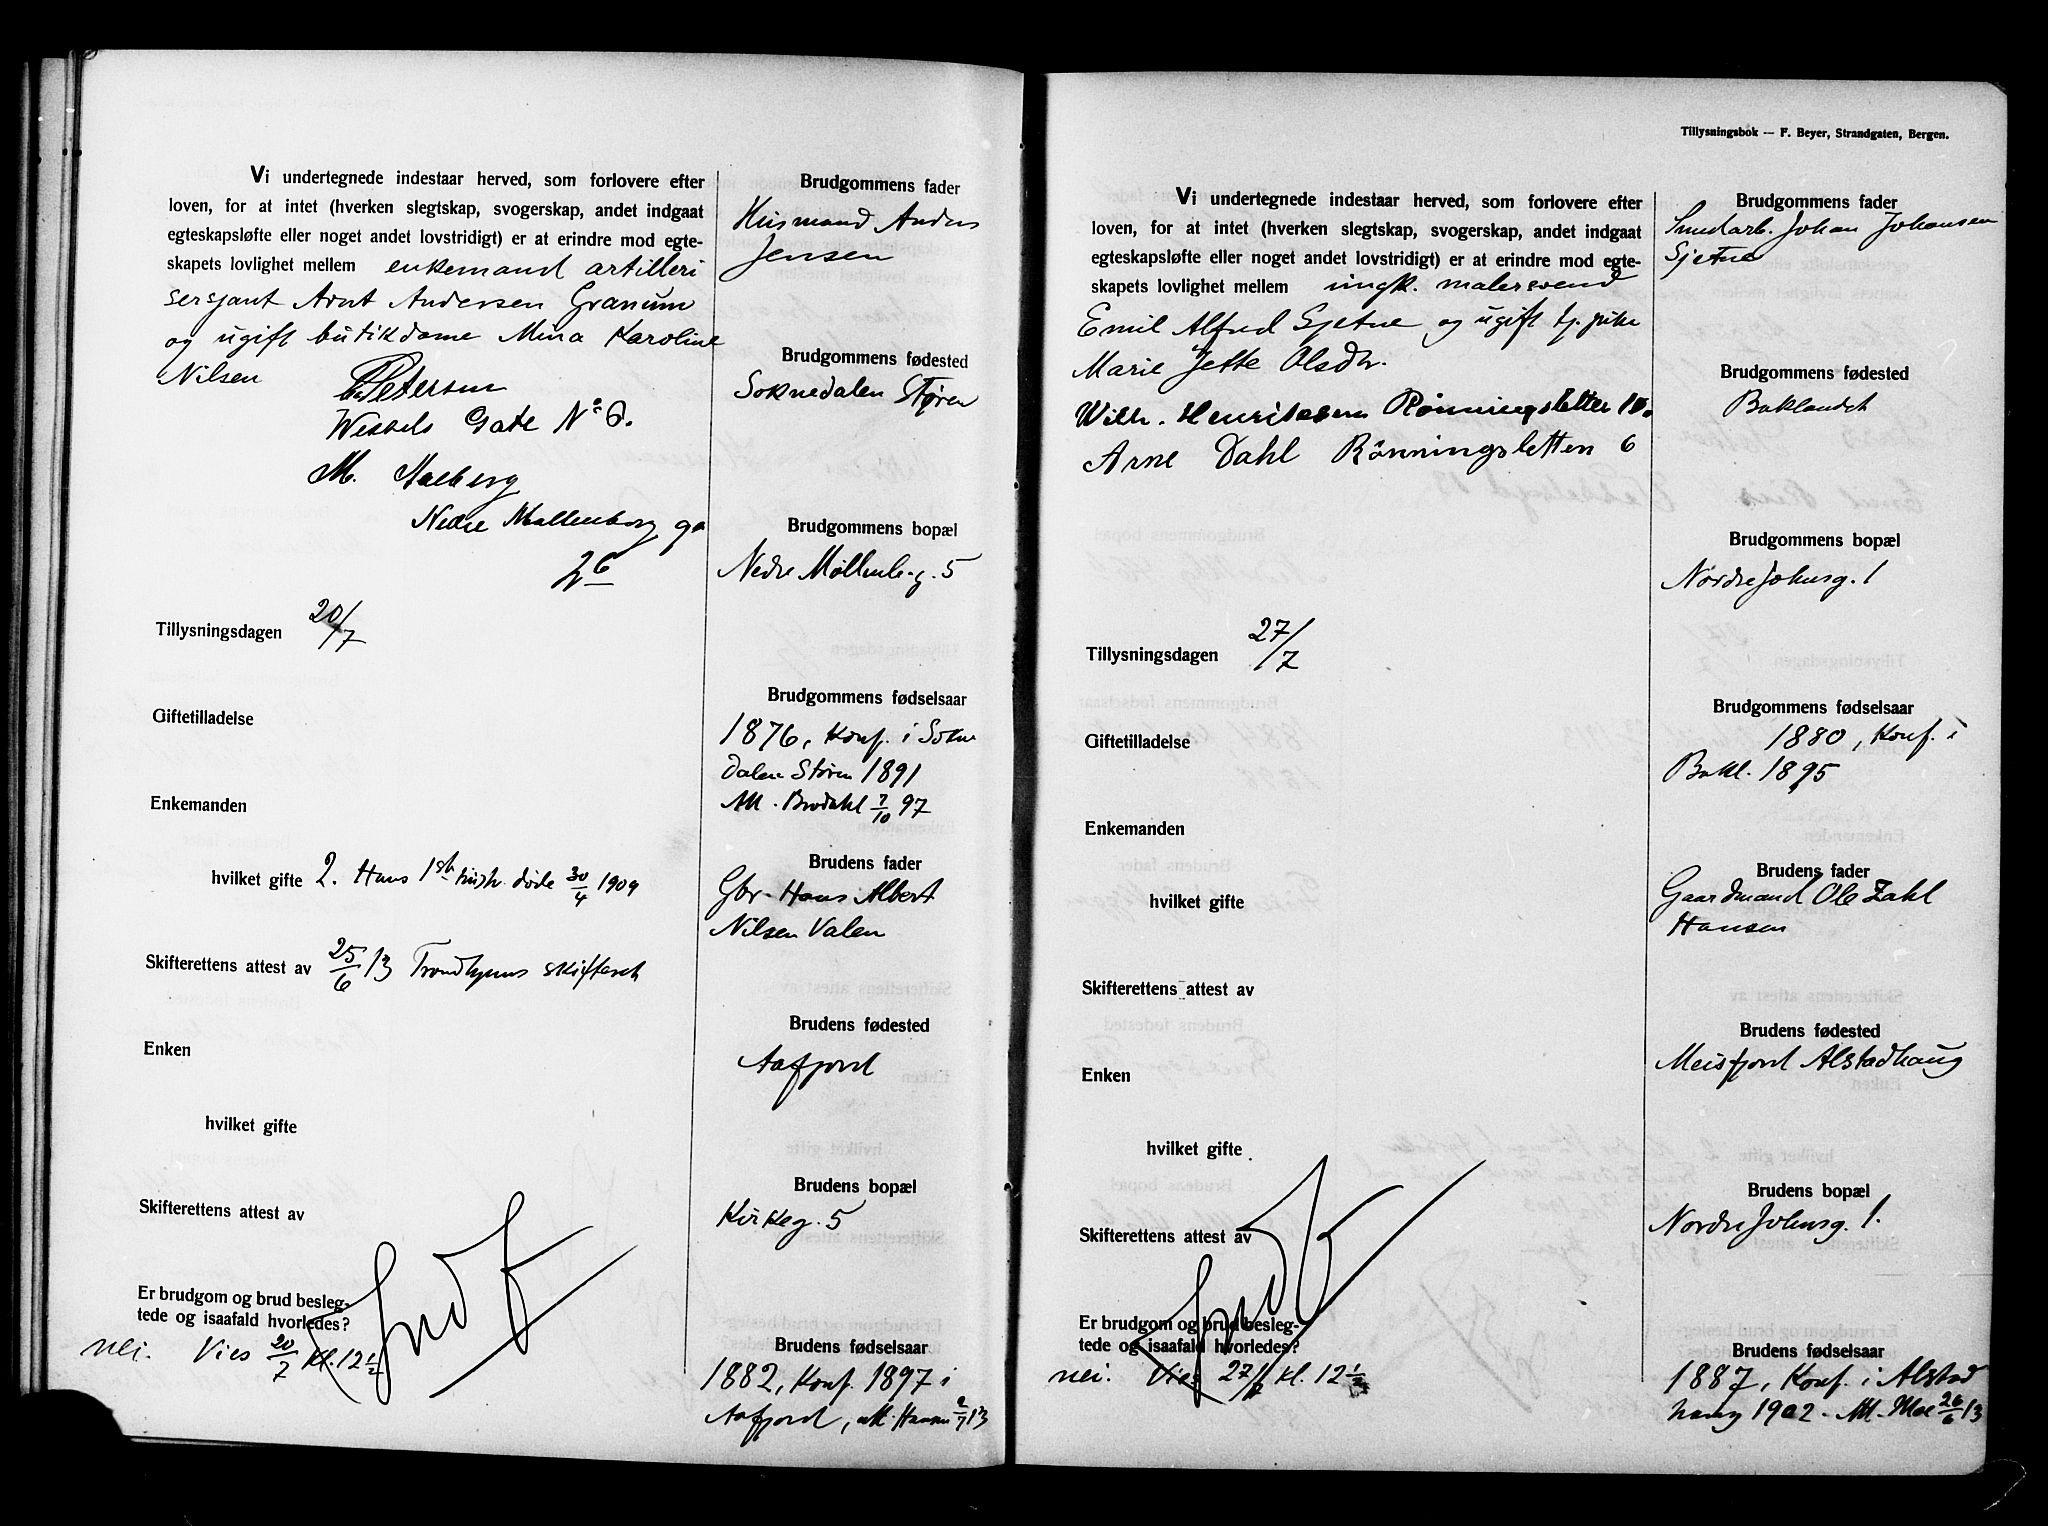 Vi undertegnede indestaar herved, som forlovere efter
loven, for at intet (hverken slegtskap, svogerskap, andet indgaat
egteskapsløfte eller noget andet lovstridigt) er at erindre mod egte-
skapets lovlighet mellem enkemand artilleri
sersjant Arnt Andersen Granum
og ugift butikdame Mina Karoline
Nilsen
Petersen
Wessels Gade No
M. Aalberg
Nedre Møllenberg ga
26
Tillysningsdagen 20/7
Giftetilladelse
Enkemanden
hvilket gifte 2. Hans 1ste hustr. døde 30/4 1909
Skifterettens attest av 25/6 13 Trondhjems skifteret
Enken
hvilket gifte
Skifterettens attest av
Er brudgom og brud besleg-
tede og isaafald hvorledes?
nei. Vies 20/7 kl. 12 1/2
Brudgommens fader
Husmand Anders
Jensen
Brudgommens fødested
Soknedalen Støren
Brudgommens bopæl
Nedre Møllenb.g. 5
Brudgommens fødselsaar
1876, Konf. i Sokne
dalen Støren 1891
Att. Brodahl 7/10 97
Brudens fader
Gbr. Hans Albert
Nilsen Valen
Brudens fødested
Aafjord
Brudens bopæl
Kirkeg. 5
Brudens fødselsaar
1882, Konf. 1897 i
Aafjord, Att. Hansen 2/7 13
Tillysningsbok — F. Beyer, Strandgaten, Bergen.
Vi undertegnede indestaar herved, som forlovere efter
loven, for at intet (hverken slegtskap, svogerskap, andet indgaat
egteskapsløfte eller noget andet lovstridigt) er at erindre mod egte-
skapets lovlighet mellem ungk. malersvend
Emil Alfred Sjetne og ugift tj. pike
Marie Jette Olsdtr.
Wilh. Henriksen Rønningsletten 10.
Arne Dahl Rønningsletten 6
Tillysningsdagen 27/7
Giftetilladelse
Enkemanden
hvilket gifte
Skifterettens attest av
Enken
hvilket gifte
Skifterettens attest av
Er brudgom og brud besleg-
tede og isaafald hvorledes?
nei. Vies 27/7 kl. 12 1/2
Brudgommens fader
Smedarb. Johan Johansen
Sjetne
Brudgommens fødested
Baklandet
Brudgommens bopæl
Nordre Johansg. 1
Brudgommens fødselsaar
1880, Konf. i
Bakl. 1895
Brudens fader
Gaardmand Ole Zahl
Hansen
Brudens fødested
Meisfjord Alstadhaug
Brudens bopæl
Nordre Johansg. 1.
Brudens fødselsaar
1887, Konf. i Alstad
haug 1902. Att. Moe 26/6 13